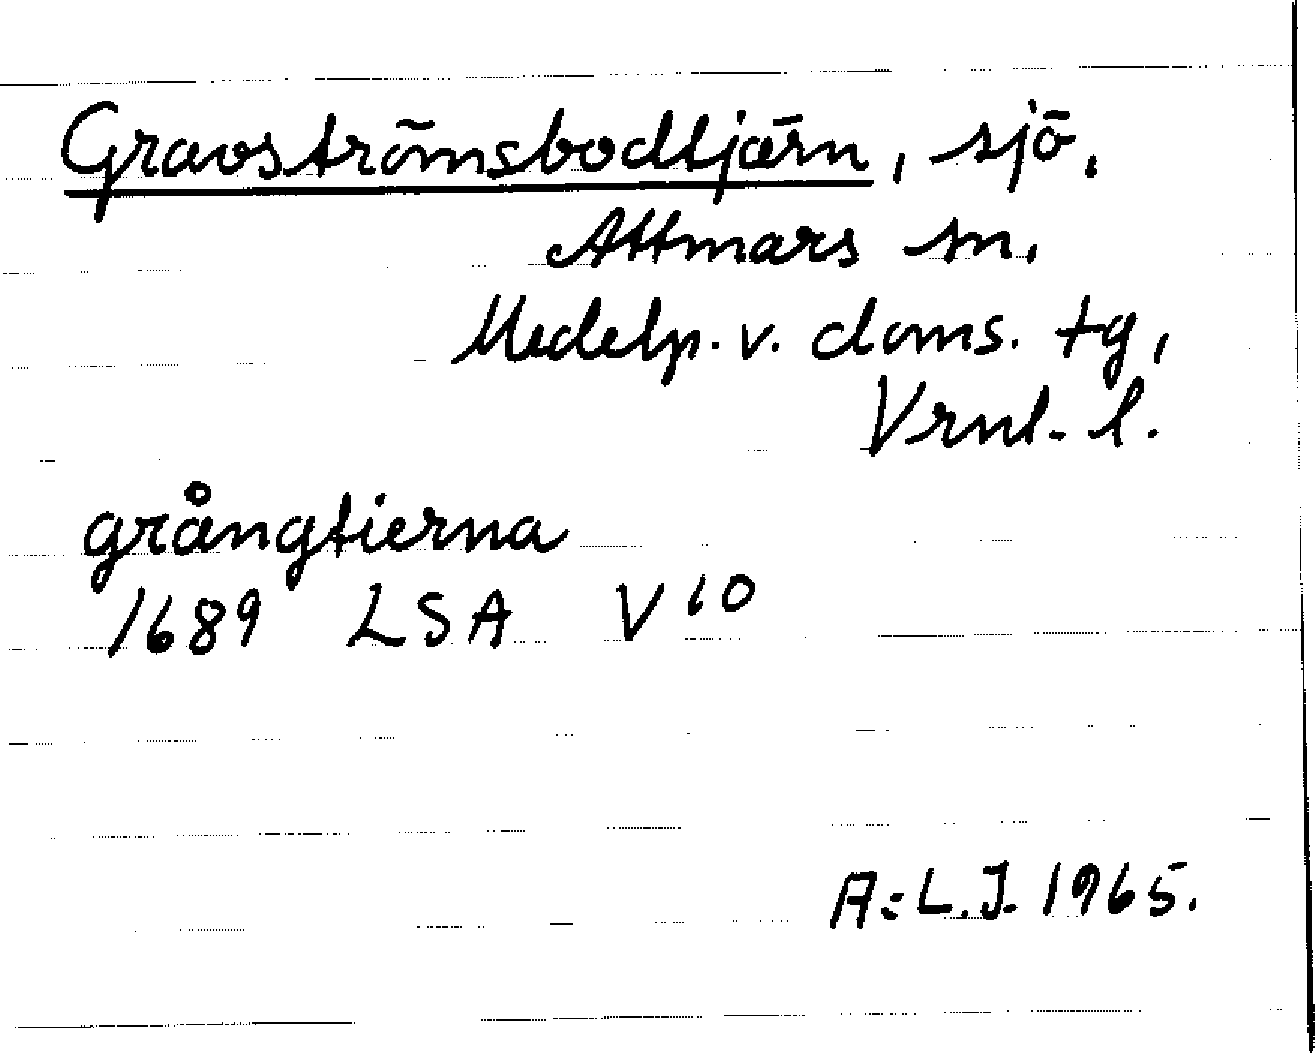 Gravströmsbodtjärn, sjö.
Attmars sn.
Medelp. v. doms. tg,
Vrnl. l.
grångtierna
1689 LSA V 10
A:L.J. 1965.